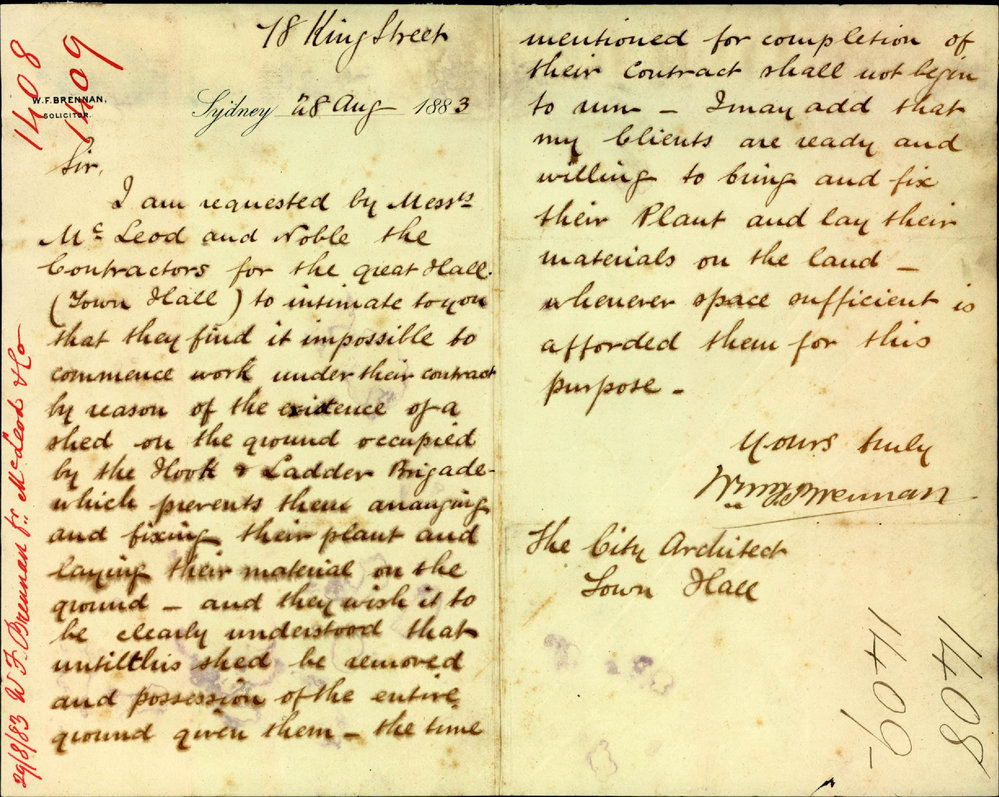 1408
1409
W.F. BRENNAN,
SOLICITOR.
78 King Street
Sydney 28 Aug 1883
Sir,
I am requested by Messrs
Mc Leod and Noble the
Contractors for the great Hall
(Town Hall) to intimate to you
that they find it impossible to
commence work under their contract
by reason of the existence of a
shed on the ground occupied
by the Hook & Ladder Brigade
which prevents them arranging
and fixing their plant and
laying their material on the
ground – and they wish it to
be clearly understood that
until this shed be removed
and possession of the entire
ground given them – the time
29/8/83 W F. Brennan fr. McLeod & Co
mentioned for completion of
their Contract shall not begin
to run – I may add that
my Clients are ready and
willing to bring and fix
their Plant and lay their
materials on the land –
whenever space sufficient is
afforded them for this
purpose –
Yours truly
Wm F Brennan
The City Architect
Town Hall
1408
1409